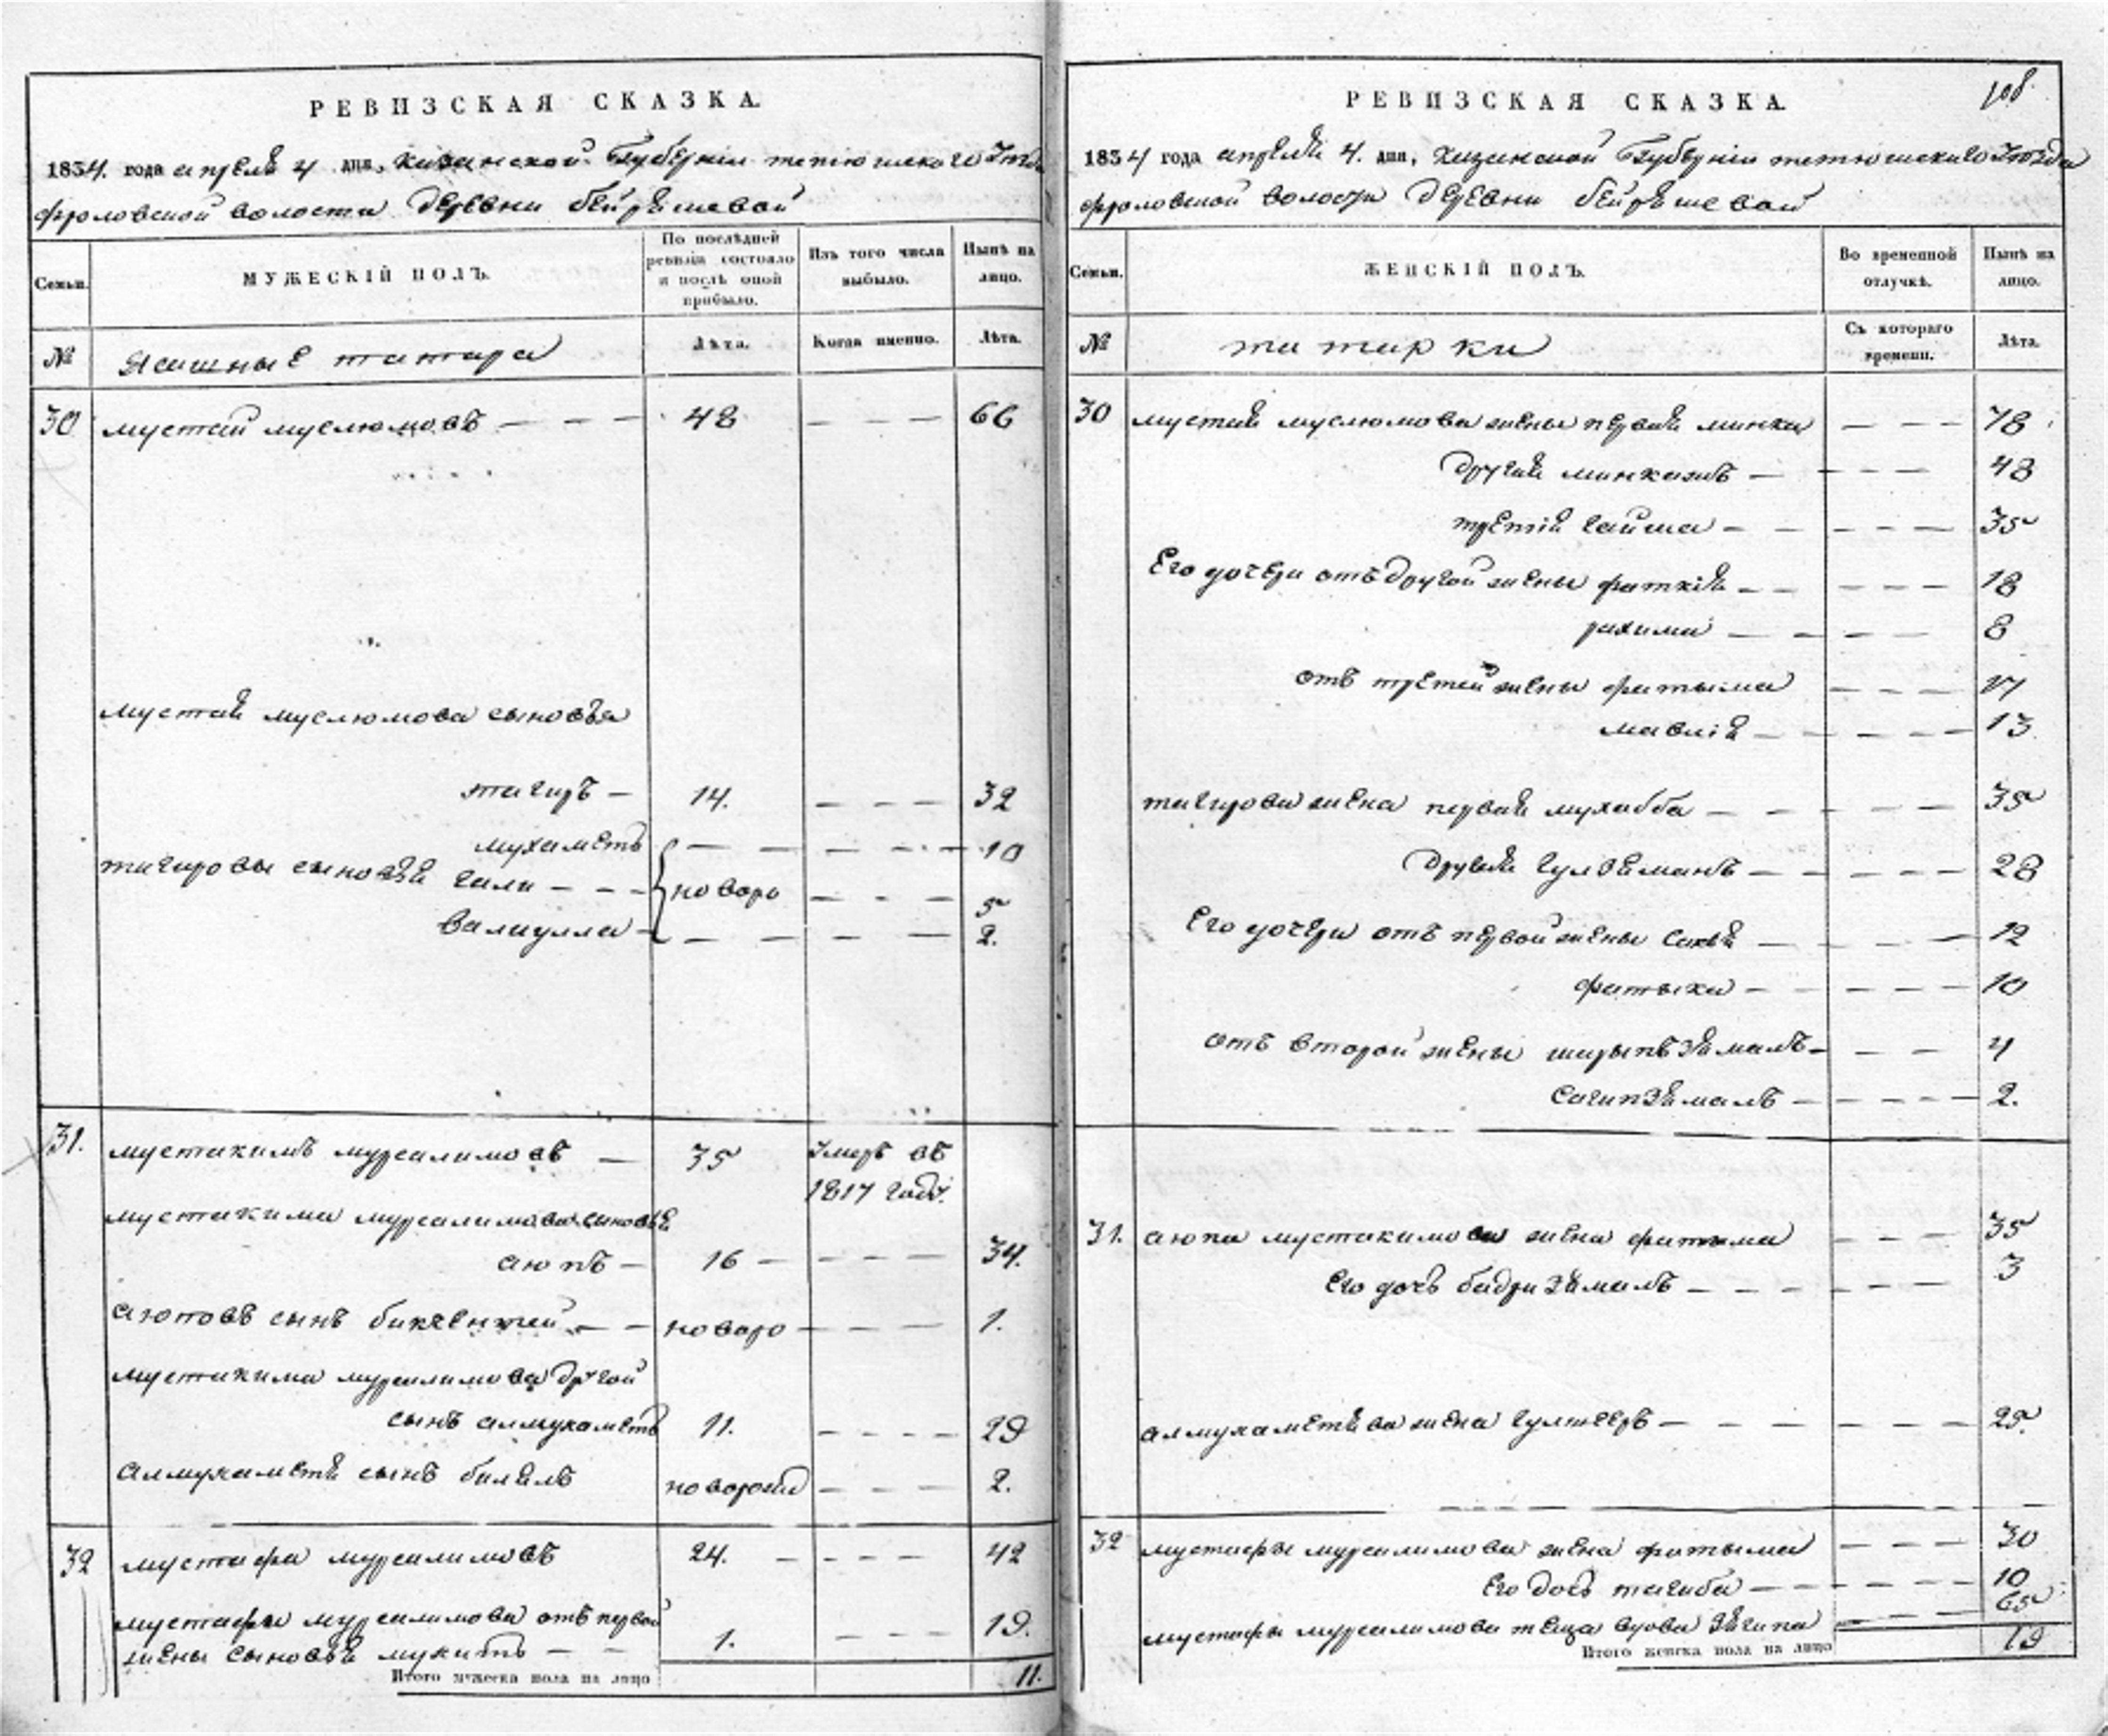 РЕВИЗСКАЯ СКАЗКА.
1834. года апреля 4 дня, Казанской Губернии тетюшскаго
фроловской волости деревни бейряшевой
Семьи.
МУЖЕСКІЙ ПОЛЪ.
По послѣдней ревизіи состояло и послѣ оной прибыло.
Изъ того числа выбыло.
Нынѣ на лицо.
№
Ясашные татара
Лѣта.
Когда именно.
Лѣта.
30 мустай муслюмовъ — — — 48 — — — 66
мустая муслюмова сыновья
тагиръ — 14. — — — 32
мухаметь — — — — — 10
тагировы сыновья гали — — — новоро — — — 5
валиулла — — — — — 2.
31. мустакимъ мурсалимовъ — 35 Умеръ въ
1817 году.
мустакима мурсалимова сыновья
аюпъ — 16 — — — — 34.
аюповъ сынъ — — новоро — — — 1.
мустакима мурсалимова другой
сынъ алмухаметь 11. — — — — 29
алмухаметя сынъ билялъ новорожд — — — 2.
32 мустафа мурсалимовъ 24. — — — — 42
мустафы мурсалимова отъ первой
жены сыновья мукитъ — — 1. — — — 19.
Итого мужеска пола на лицо 11.
РЕВИЗСКАЯ СКАЗКА.
108.
1834 года апреля 4. дня, Казанской Губернии тетюшскаго Уезда
фроловской волости деревни бейряшевой
Семьи.
ЖЕНСКІЙ ПОЛЪ.
Во временной отлучкѣ.
Нынѣ на лицо.
№
татарки
Съ котораго времени.
Лѣта.
30 мустая муслюмова жены первая минка — — — 78
другая — — — — 48
третия гайша — — — — 35
Его дочери отъ другой жены фаткія — — — — — 18
рахима — — — — 8
отъ третей жены фатыма — — — 17
мавлія — — — — — 13
тагирова жена первая мухабба — — — — — 35
другая гулзяманъ — — — — — 28
Его дочери отъ первой жены — — — — 12
фатыха — — — — — 10
отъ второй жены шарыпзямалъ — — — 4
сагипзямалъ — — — — — 2.
31. аюпа мустакимова жена фатыма — — — 35
Его дочь бадризямалъ — — — — — 3
алмухаметева жена — — — — — 25.
32 мустафы мурсалимова жена фатыма — — — 30
Его дочь тагиба — — — — — 10
мустафы мурсалимова теща вдова — — — 65
Итого женска пола на лицо 19